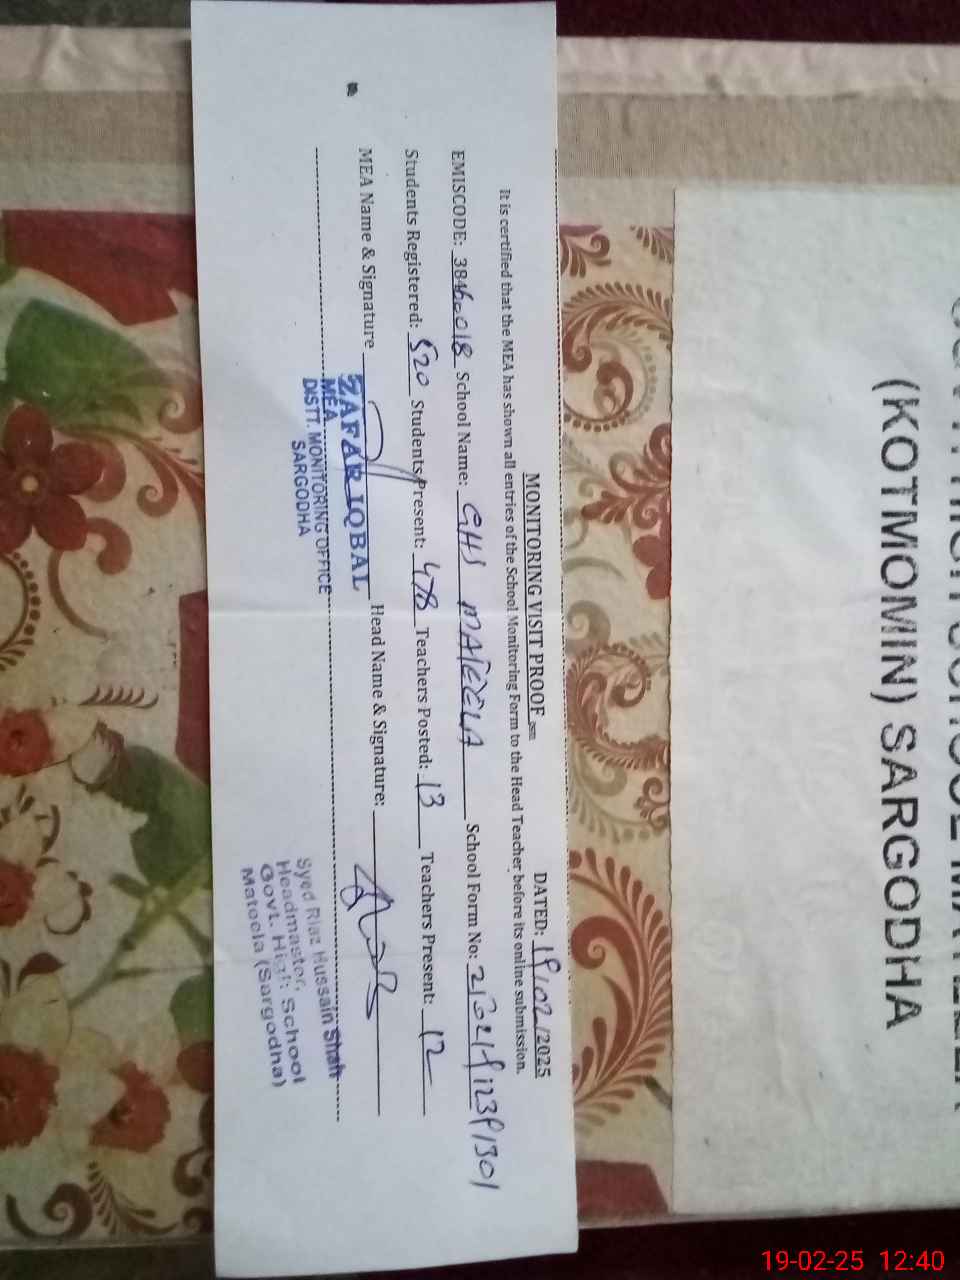 MONITORING VISIT PROOF
DATED: 19/02/2025
It is certified that the MEA has shown all entries of the School Monitoring Form to the Head Teacher before its online submission.
EMISCODE: 38460018 School Name: GHS MATEELA School Form No:
Students Registered: 520 Students Present: 478 Teachers Posted: 13 Teachers Present: 12
MEA Name & Signature Head Name & Signature:
ZAFAR IQBAL
MEA
DISTT. MONITORING OFFICE
SARGODHA
Syed Riaz Hussain Shah
Headmaster,
Govt. High School
Mateela (Sargodha)
(KOTMOMIN) SARGODHA
19-02-25 12:40